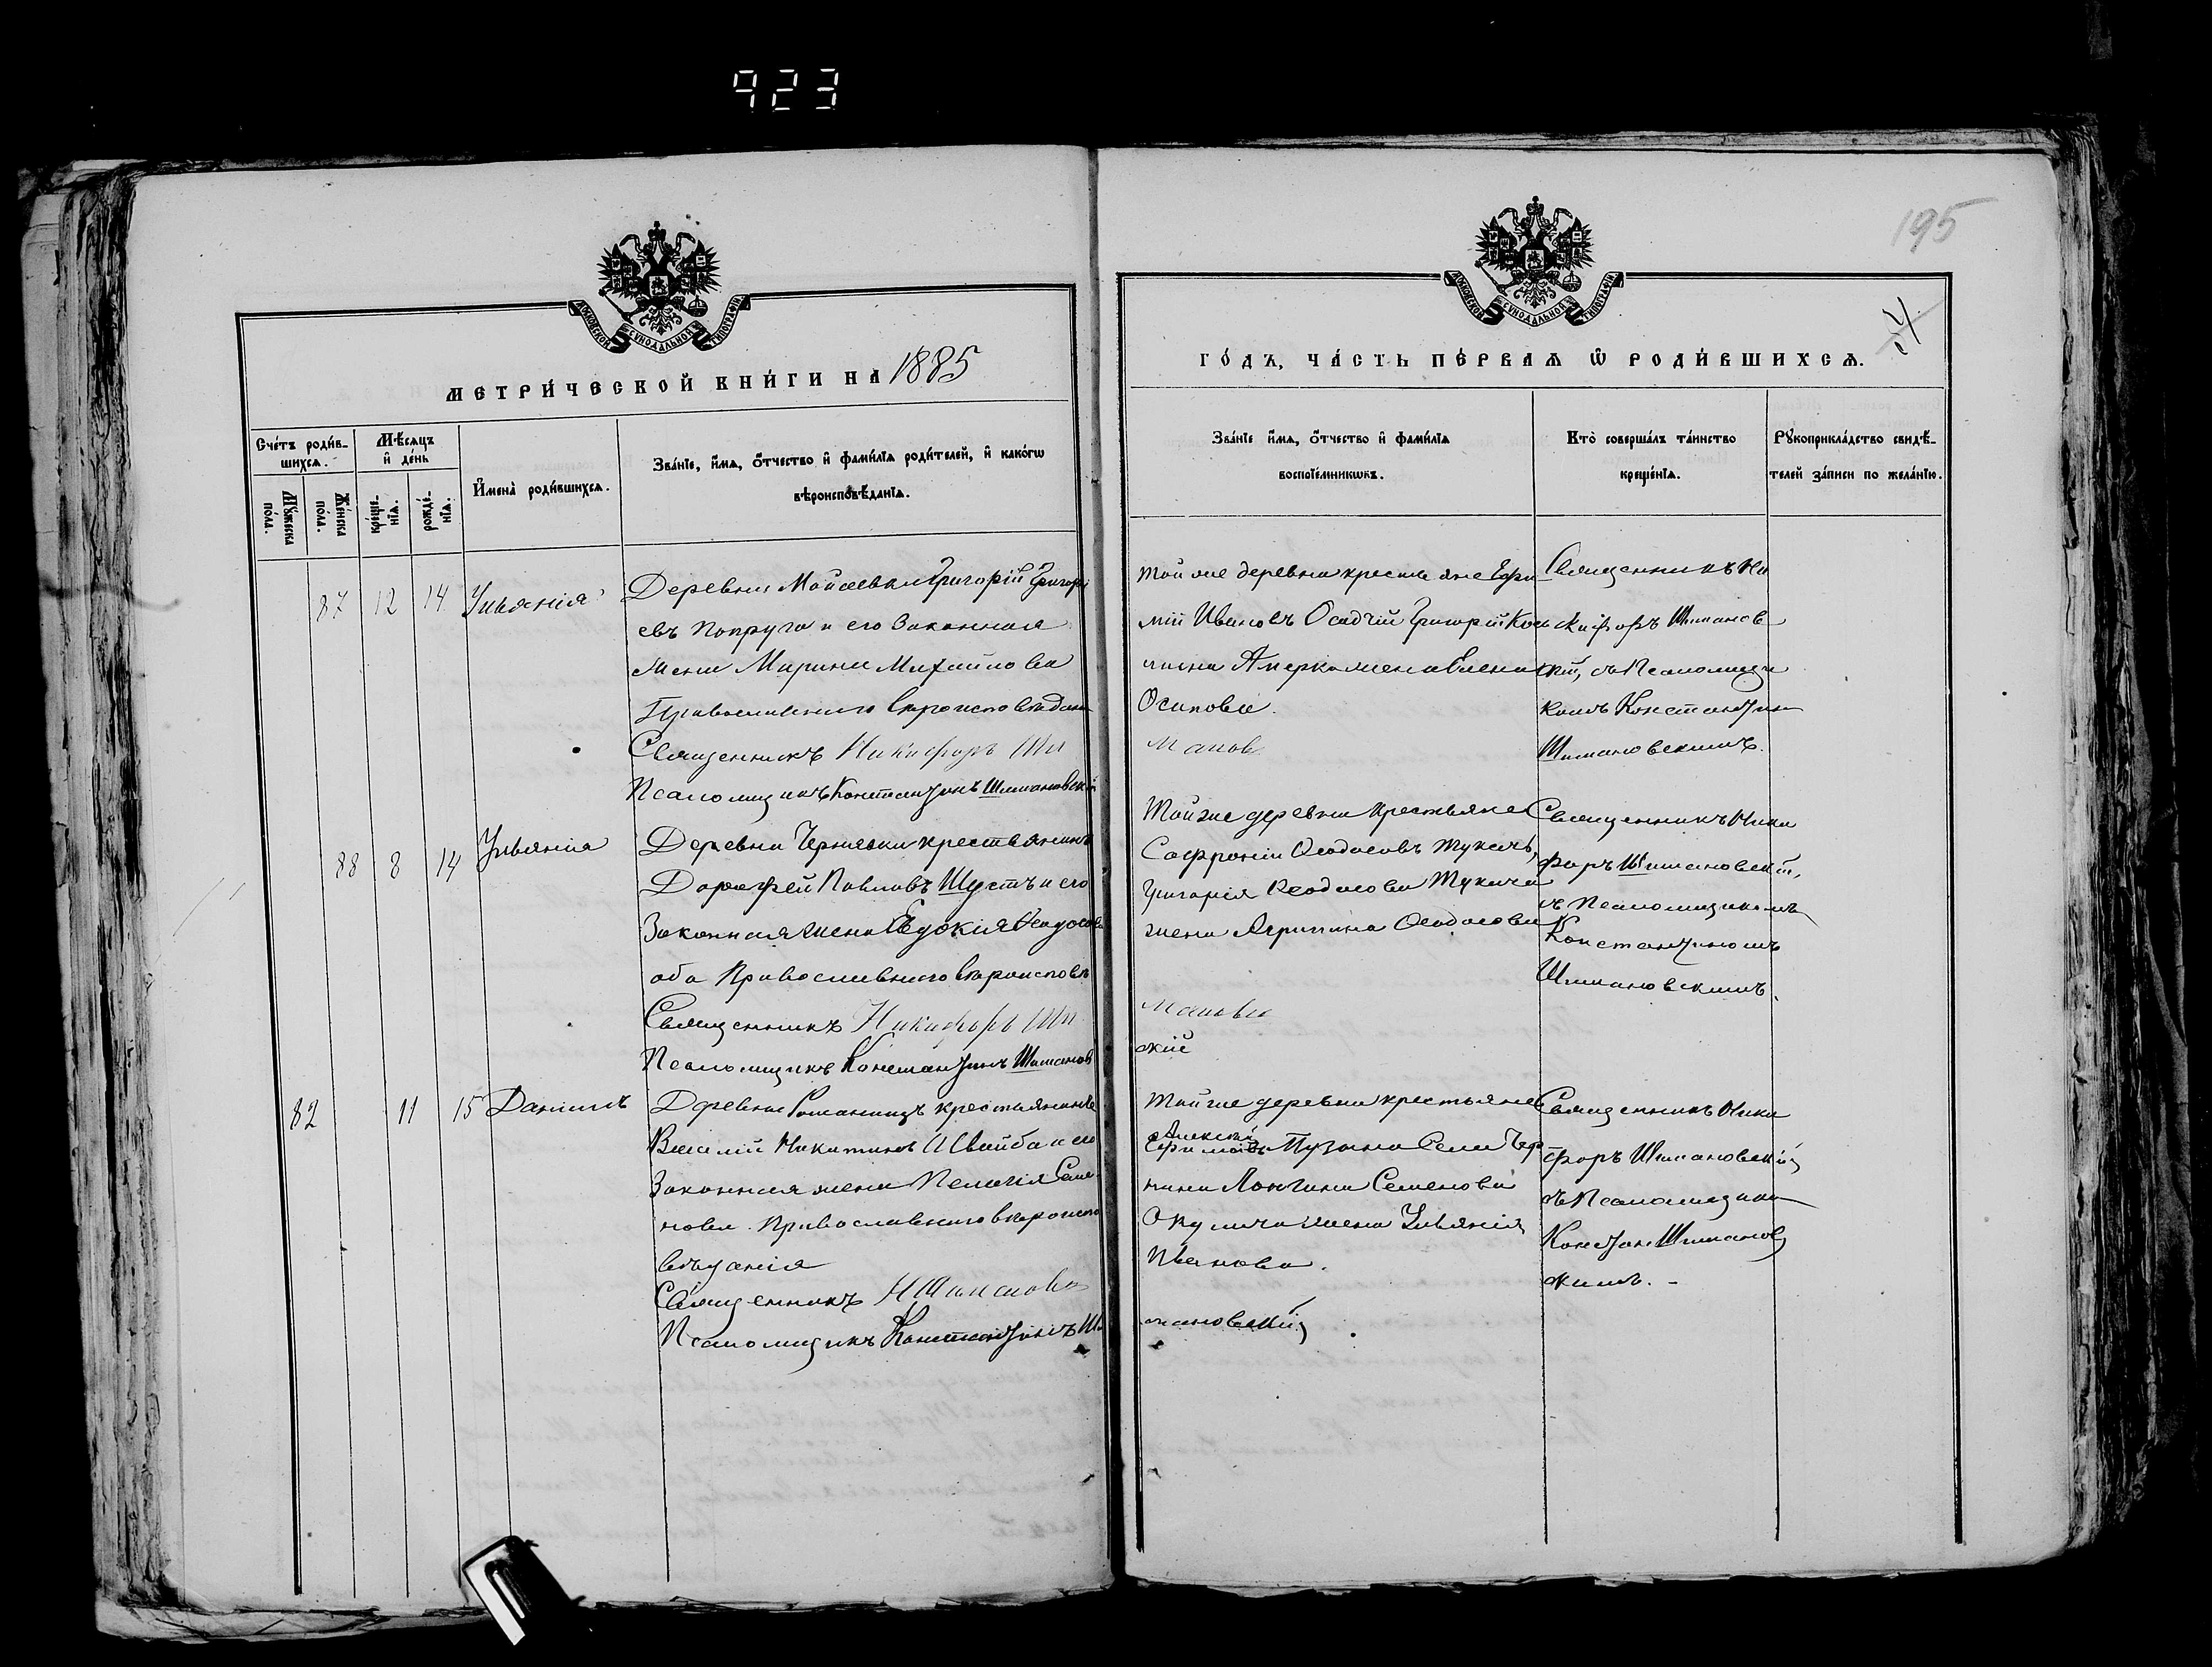 923
195
МОСКОВСКОЙ СѴНОДАЛЬНОЙ ТИПОГРАФІИ
МЕТРИ́ЧЕСКОЙ КНИ́ГИ НА 1885
Сче́тъ роди́в-
шихсѧ.
Мѣ́сѧцъ
и҆ де́нь
Мꙋ́жеска
по́ла.
Же́нска
по́ла.
креще́-
нїѧ.
рожде́-
нїѧ.
И҆мена̀ роди́вшихсѧ.
Зва́нїе, и҆́мѧ, ѻ҆́тчество и҆ фами́лїѧ роди́телей, и҆ како́гѡ
вѣроисповѣ́данїѧ.
87 12 14 Ульянія
Деревни Мойсеевки Григорій Григорі
евъ Попруга и его Законная
жена Марина Михайлова
Православнаго вѣроисповѣдани
Священникъ Никифоръ Ши
Псаломщикъ Константинъ Шимановскій
88 8 14 Ульянія
Деревни Чернявки крестьянинъ
Дорофей Павловъ Шустъ и его
Законная жена Евдокія Ѳеодосова
оба Православнаго вѣроисповѣ
Священникъ Никифоръ Ши
Псаломщикъ Константинъ Шиманов
82 11 15 Даніилъ
Деревни крестьянинъ
Василій Никитинъ и его
Законная жена Пелагія Семе
нова Православнаго вѣроиспо
вѣданія
Священникъ Н Шиманов
Псаломщикъ Константинъ Ши
МОСКОВСКОЙ СѴНОДАЛЬНОЙ ТИПОГРАФІИ
ГО́ДЪ, ЧА́СТЬ ПЕ́РВАѦ Ѡ҆ РОДИ́ВШИХСѦ.
Зва́нїе и҆́мѧ, ѻ҆́тчество и҆ фами́лїѧ
воспрїе́мникѡвъ.
Кто̀ соверша́лъ та́инство
креще́нїѧ.
Рꙋкоприкла́дство свидѣ́-
телей за́писи по жела́нїю.
Той же деревни крестьяне Ефи
мій Ивановъ Осадчій Григорій
жена Елена
Осипова.
манов
Священникъ Ни
кифоръ Шиманов
скій, съ Псаломщи
комъ Константин
Шимановскимъ.
Той же деревни крестьяне
Софроній Ѳеодосовъ Тукачъ,
Григорія Ѳеодосова Тукача
жена Агрипина Ѳеодосова
мановс
скій
Священникъ Ники
форъ Шимановскій,
съ Псаломщикомъ
Константиномъ
Шимановскимъ.
Той же деревни крестьяне
Алексѣй
Семенова
жена Ульянія
Иванова.
мановскій
Священникъ Ники
форъ Шимановскій
съ Псаломщики
Шиманов
скимъ. -